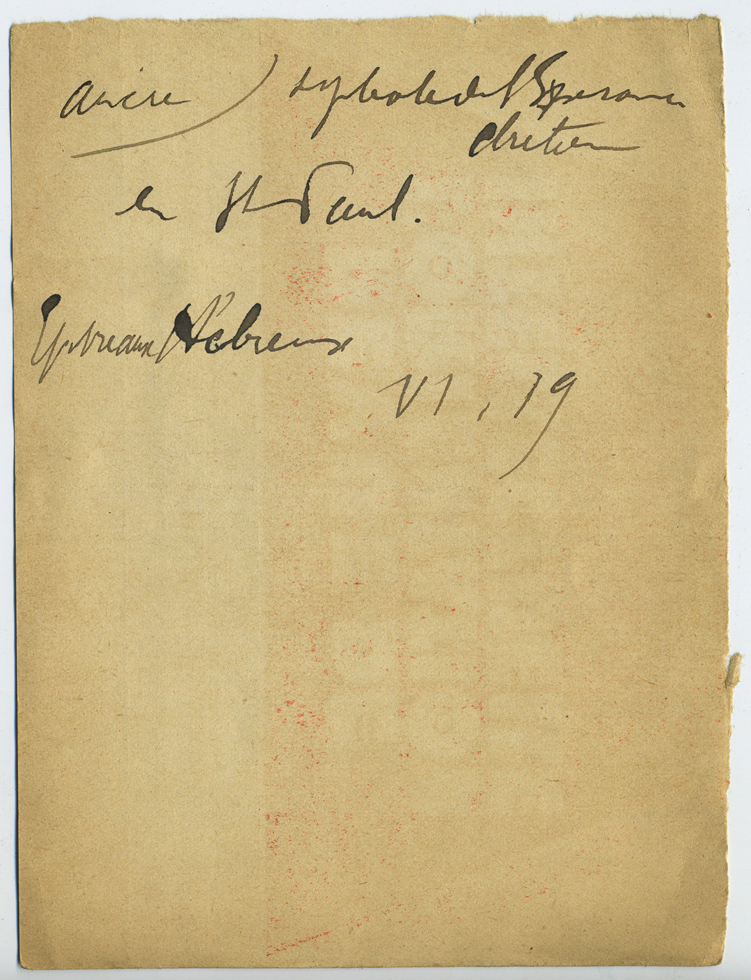 ancre ) symbole de l'Espérance
chrétien
en St Paul.
Epitre aux Hébreux
VI, 19